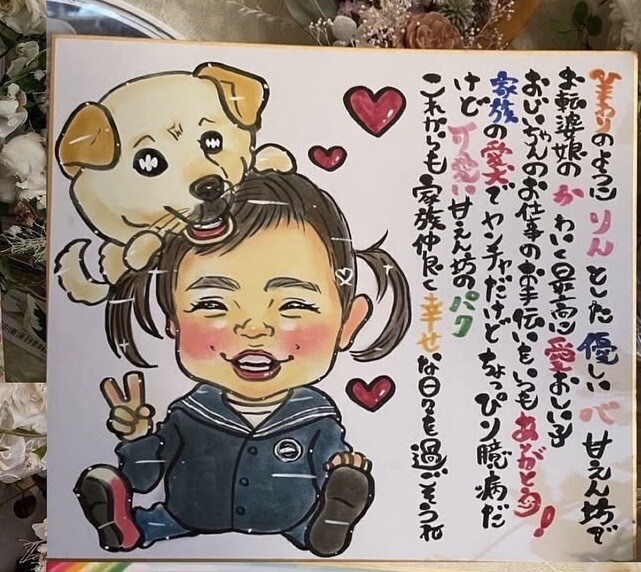 ひまわりのように りんとした 優しい 心 甘えん坊で
お転婆娘の かわいく最高に愛おしい子
おじいちゃんのお仕事のお手伝いもいつもありがとう!
家族の愛犬でヤンチャだけどちょっぴり臆病だ
けど可愛い甘えん坊のパク
これからも家族仲良く幸せな日々を過ごそうね